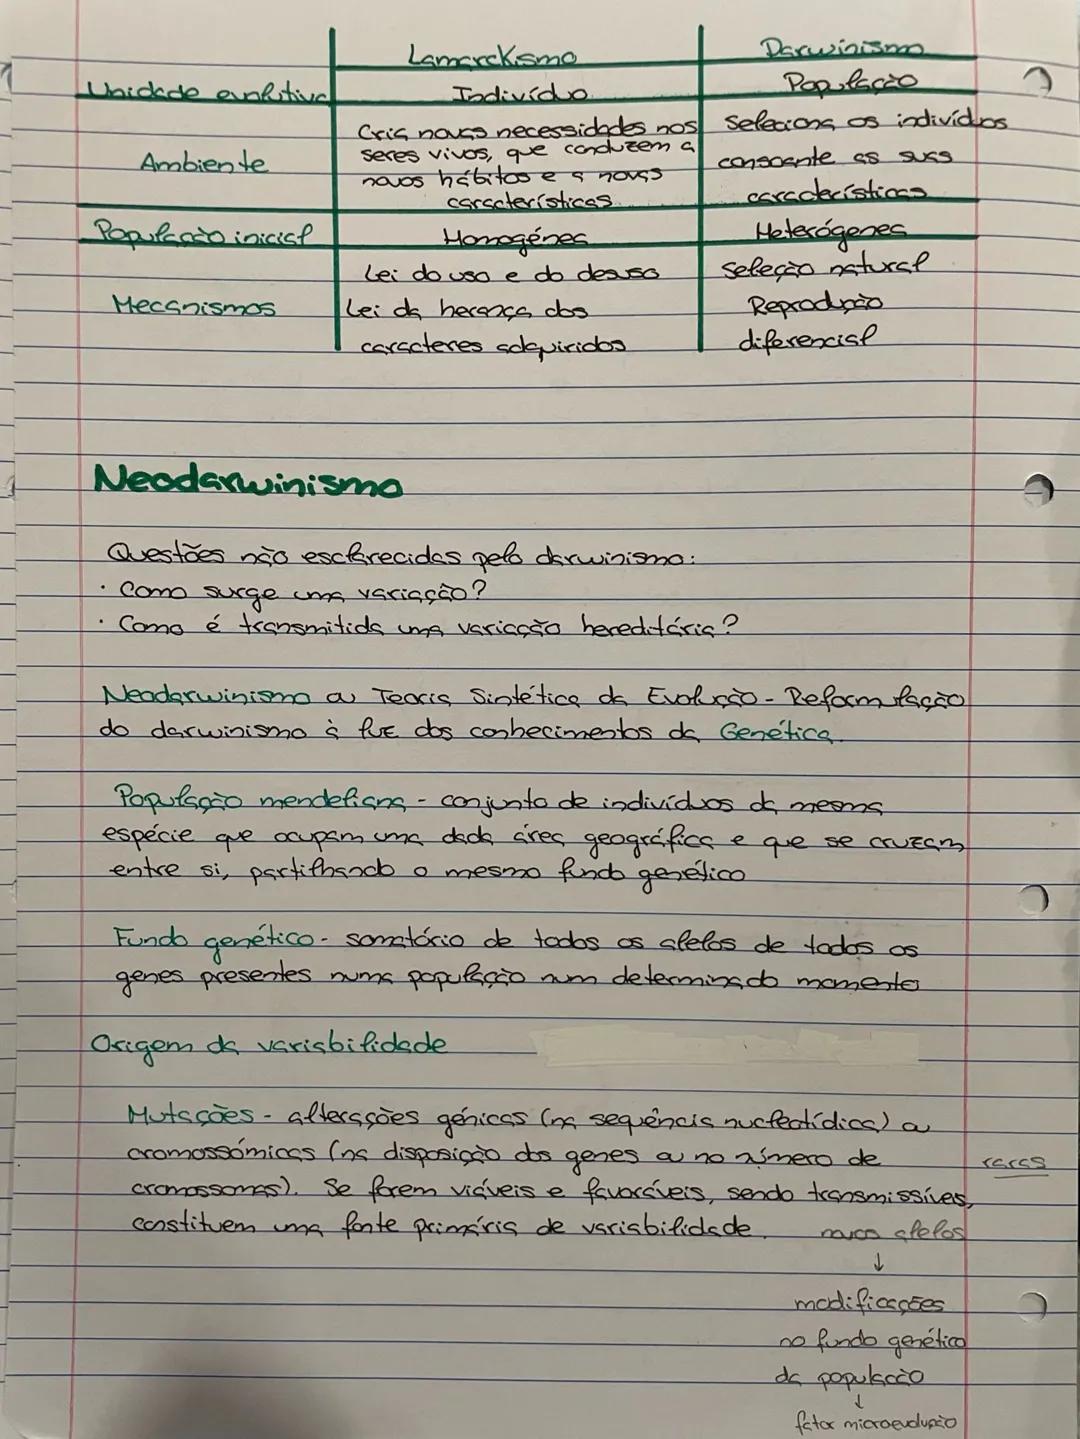 Lamarckismo
Darwinismo
Unidade evolutiva
Indivíduo
População
Ambiente
Cria novas necessidades nos
seres vivos, que conduzem a
novos hábitos e a novas
características
Seleciona os indivíduos
consoante as suas
características
População inicial
Homogénea
Heterógenea
Mecanismos
Lei do uso e do desuso
Lei da herança dos
caracteres adquiridos
Seleção natural
Reprodução
diferencial
Neodarwinismo
Questões não esclarecidas pelo darwinismo:
· Como surge uma variação?
· Como é transmitida uma variação hereditária?
Neodarwinismo ou Teoria Sintética da Evolução - Reformulação
do darwinismo à luz dos conhecimentos da Genética.
População mendeliana - conjunto de indivíduos da mesma
espécie que ocupam uma dada área geográfica e que se cruzam
entre si, partilhando o mesmo fundo genético
Fundo genético - somatório de todos os alelos de todos os
genes presentes numa população num determinado momento
Origem da variabilidade
Mutações - alterações génicas (na sequência nucleotídica) ou
cromossómicas (na disposição dos genes ou no número de
raras
cromossomas). Se forem viáveis e favoráveis, sendo transmissíveis,
constituem uma fonte primária de variabilidade.
novos alelos
↓
modificações
no fundo genético
da população
↓
fator microevolução